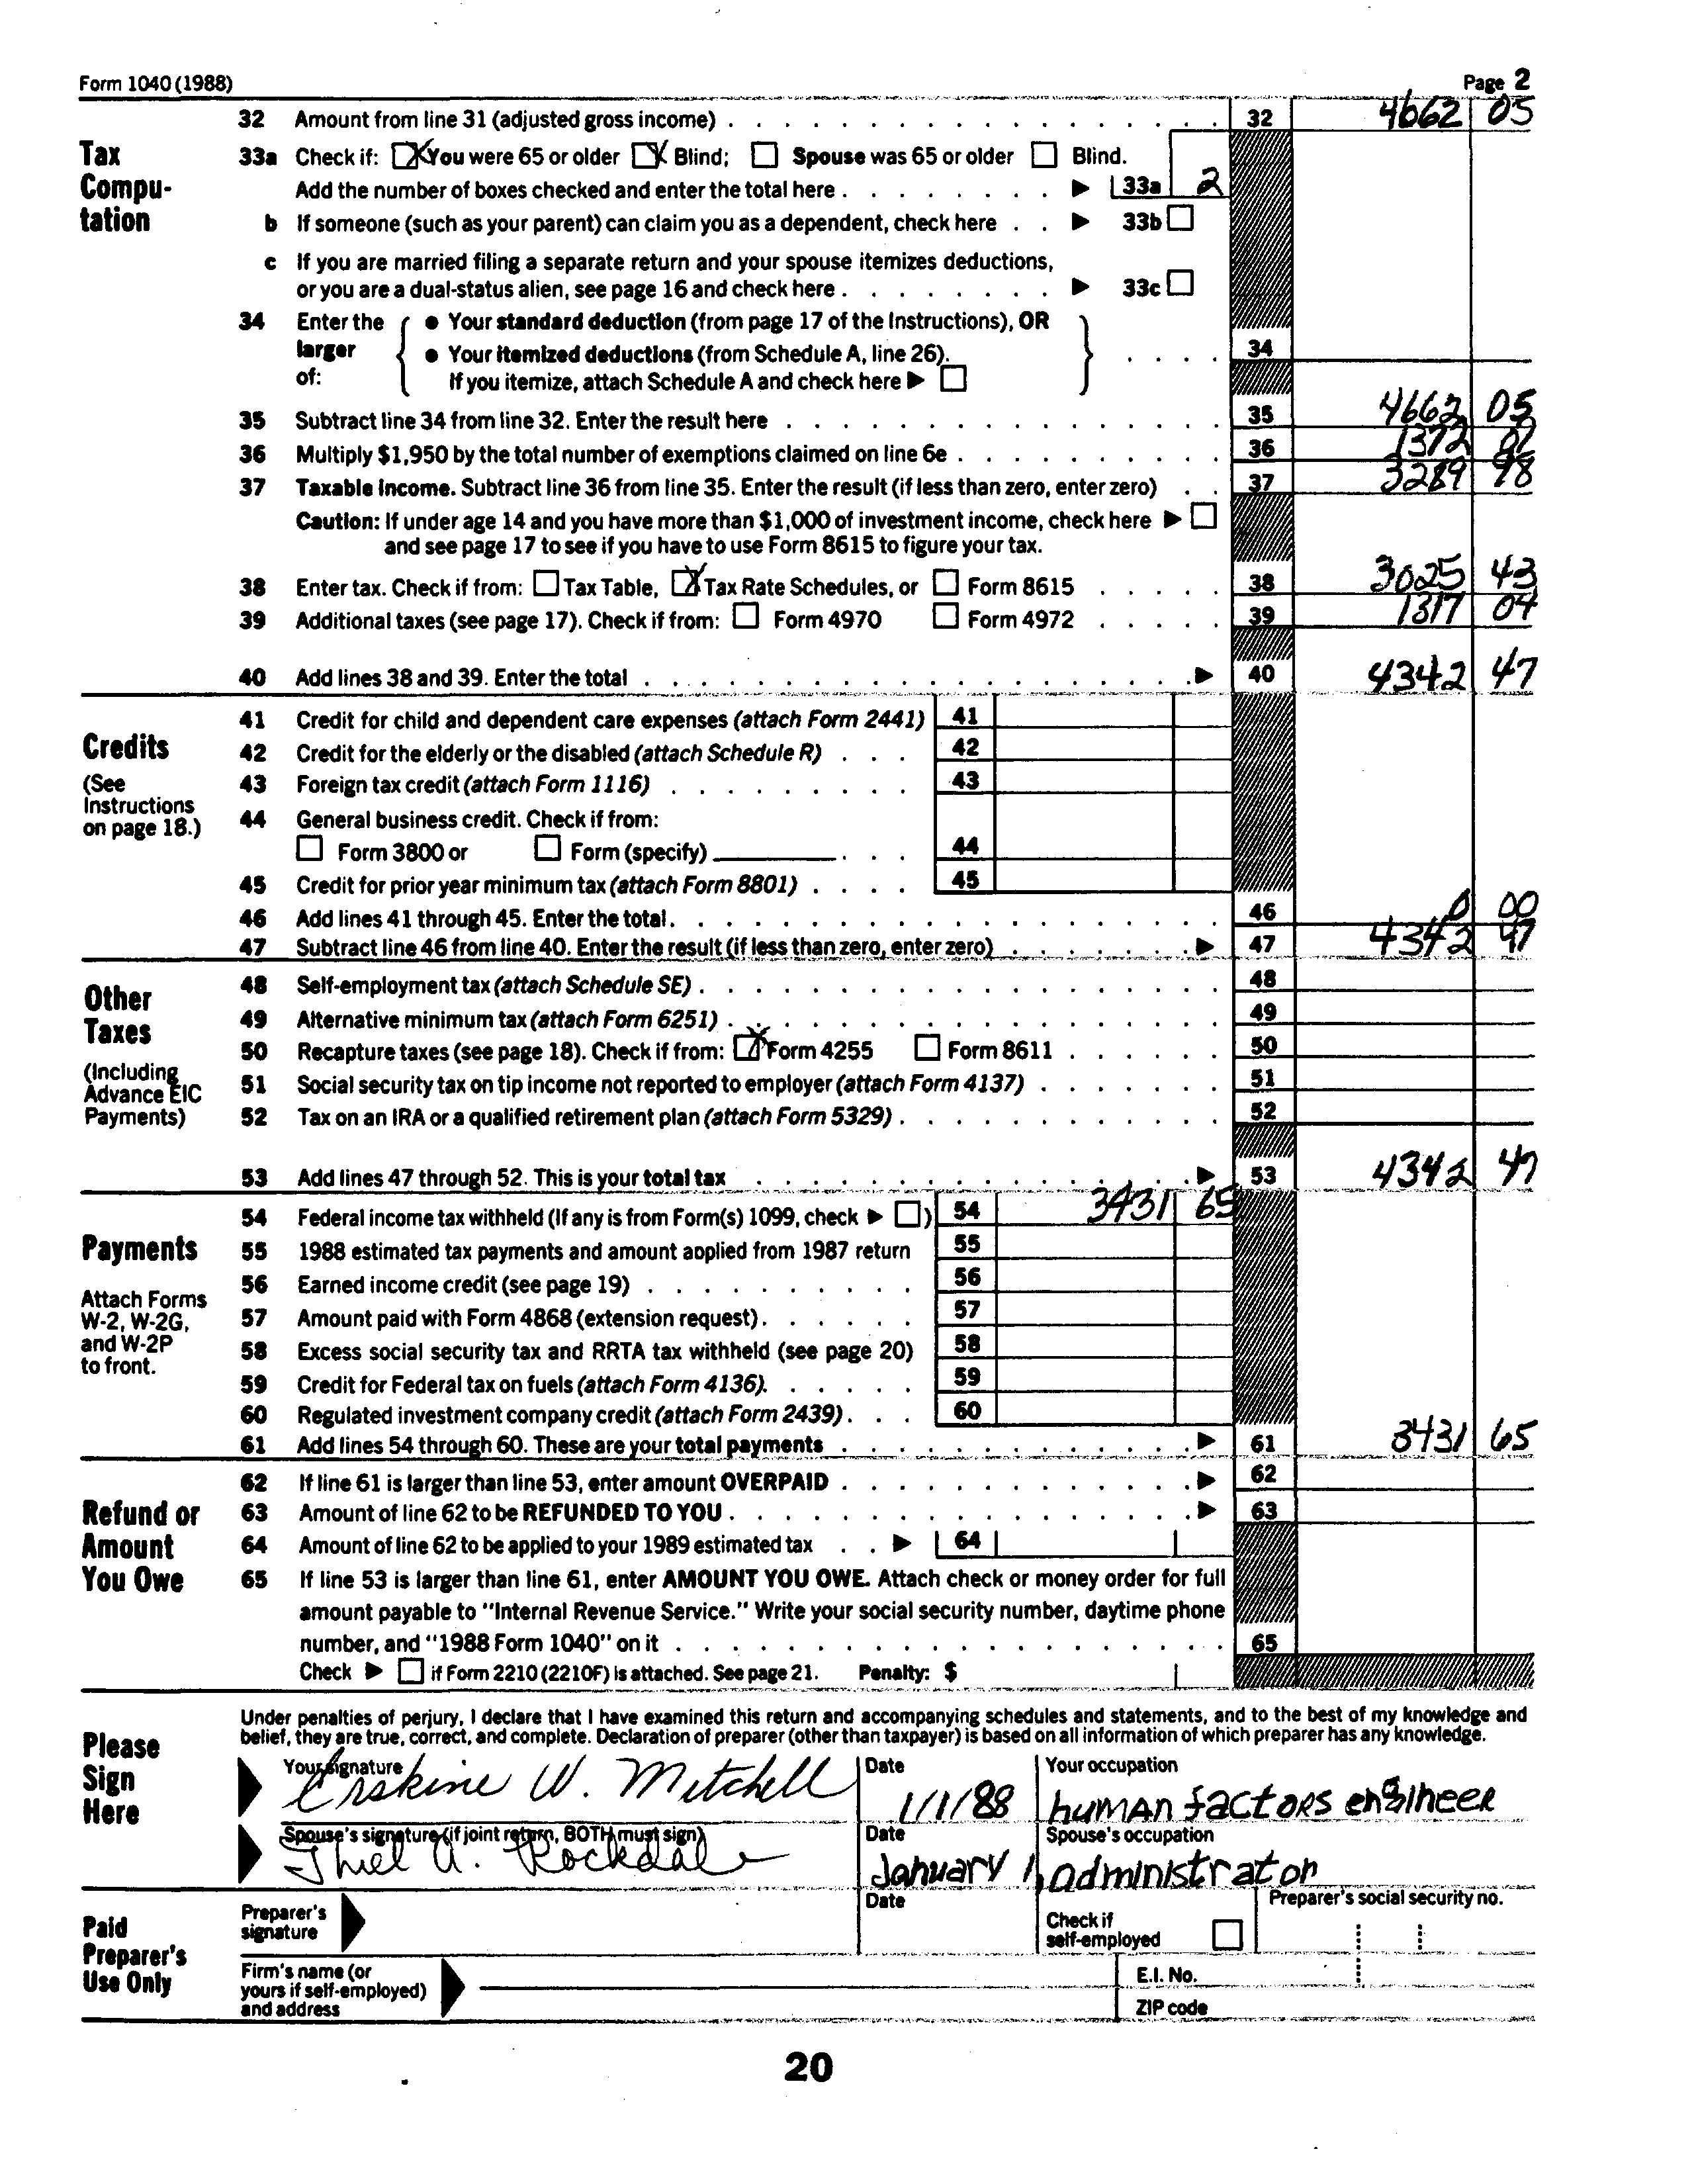 Form 1040 (1988) Page 2
32 Amount from line 31 (adjusted gross income) 32 4662 05
Tax Computation
33a Check if: You were 65 or older Blind; Spouse was 65 or older Blind.
Add the number of boxes checked and enter the total here 33a 2
b If someone (such as your parent) can claim you as a dependent, check here 33b
c If you are married filing a separate return and your spouse itemizes deductions,
or you are a dual-status alien, see page 16 and check here 33c
34 Enter the larger of:
• Your standard deduction (from page 17 of the Instructions), OR
• Your itemized deductions (from Schedule A, line 26). 34
If you itemize, attach Schedule A and check here
35 Subtract line 34 from line 32. Enter the result here 35 4662 05
36 Multiply $1,950 by the total number of exemptions claimed on line 6e 36 1372 07
37 Taxable income. Subtract line 36 from line 35. Enter the result (if less than zero, enter zero) 37 3289 98
Caution: If under age 14 and you have more than $1,000 of investment income, check here
and see page 17 to see if you have to use Form 8615 to figure your tax.
38 Enter tax. Check if from: Tax Table, Tax Rate Schedules, or Form 8615 38 3025 43
39 Additional taxes (see page 17). Check if from: Form 4970 Form 4972 39 1317 04
40 Add lines 38 and 39. Enter the total 40 4342 47
Credits
(See Instructions on page 18.)
41 Credit for child and dependent care expenses (attach Form 2441) 41
42 Credit for the elderly or the disabled (attach Schedule R) 42
43 Foreign tax credit (attach Form 1116) 43
44 General business credit. Check if from:
Form 3800 or Form (specify) 44
45 Credit for prior year minimum tax (attach Form 8801) 45
46 Add lines 41 through 45. Enter the total 46 0 00
47 Subtract line 46 from line 40. Enter the result (if less than zero, enter zero) 47 4342 47
Other Taxes
(Including Advance EIC Payments)
48 Self-employment tax (attach Schedule SE) 48
49 Alternative minimum tax (attach Form 6251) 49
50 Recapture taxes (see page 18). Check if from: Form 4255 Form 8611 50
51 Social security tax on tip income not reported to employer (attach Form 4137) 51
52 Tax on an IRA or a qualified retirement plan (attach Form 5329) 52
53 Add lines 47 through 52. This is your total tax 53 4342 47
Payments
Attach Forms W-2, W-2G, and W-2P to front.
54 Federal income tax withheld (If any is from Form(s) 1099, check ) 54 3431 65
55 1988 estimated tax payments and amount applied from 1987 return 55
56 Earned income credit (see page 19) 56
57 Amount paid with Form 4868 (extension request) 57
58 Excess social security tax and RRTA tax withheld (see page 20) 58
59 Credit for Federal tax on fuels (attach Form 4136) 59
60 Regulated investment company credit (attach Form 2439) 60
61 Add lines 54 through 60. These are your total payments 61 3431 65
Refund or Amount You Owe
62 If line 61 is larger than line 53, enter amount OVERPAID 62
63 Amount of line 62 to be REFUNDED TO YOU 63
64 Amount of line 62 to be applied to your 1989 estimated tax 64
65 If line 53 is larger than line 61, enter AMOUNT YOU OWE. Attach check or money order for full
amount payable to "Internal Revenue Service." Write your social security number, daytime phone
number, and "1988 Form 1040" on it 65
Check if Form 2210 (2210F) is attached. See page 21. Penalty: $
Please Sign Here
Under penalties of perjury, I declare that I have examined this return and accompanying schedules and statements, and to the best of my knowledge and
belief, they are true, correct, and complete. Declaration of preparer (other than taxpayer) is based on all information of which preparer has any knowledge.
Your signature Date Your occupation
Erskine W. Mitchell 1/1/88 human factors engineer
Spouse's signature (if joint return, BOTH must sign) Date Spouse's occupation
Thiel A. Rockdale January 1, administrator
Paid Preparer's Use Only
Preparer's signature Date Check if self-employed Preparer's social security no.
Firm's name (or yours if self-employed) and address E.I. No.
ZIP code
20